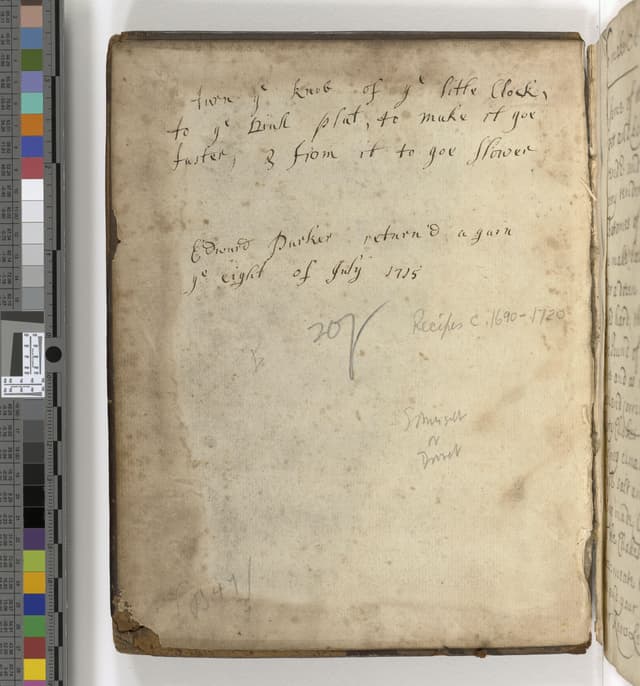 turn yᵉ knob of yᵉ little Clock,
to yᵉ Dial plat, to make it goe
faster, & from it to goe slower
Edward Parker return'd again
yᵉ eight of July 1715
20/
Recipes c. 1690-1720
Somerset
or
Dorset